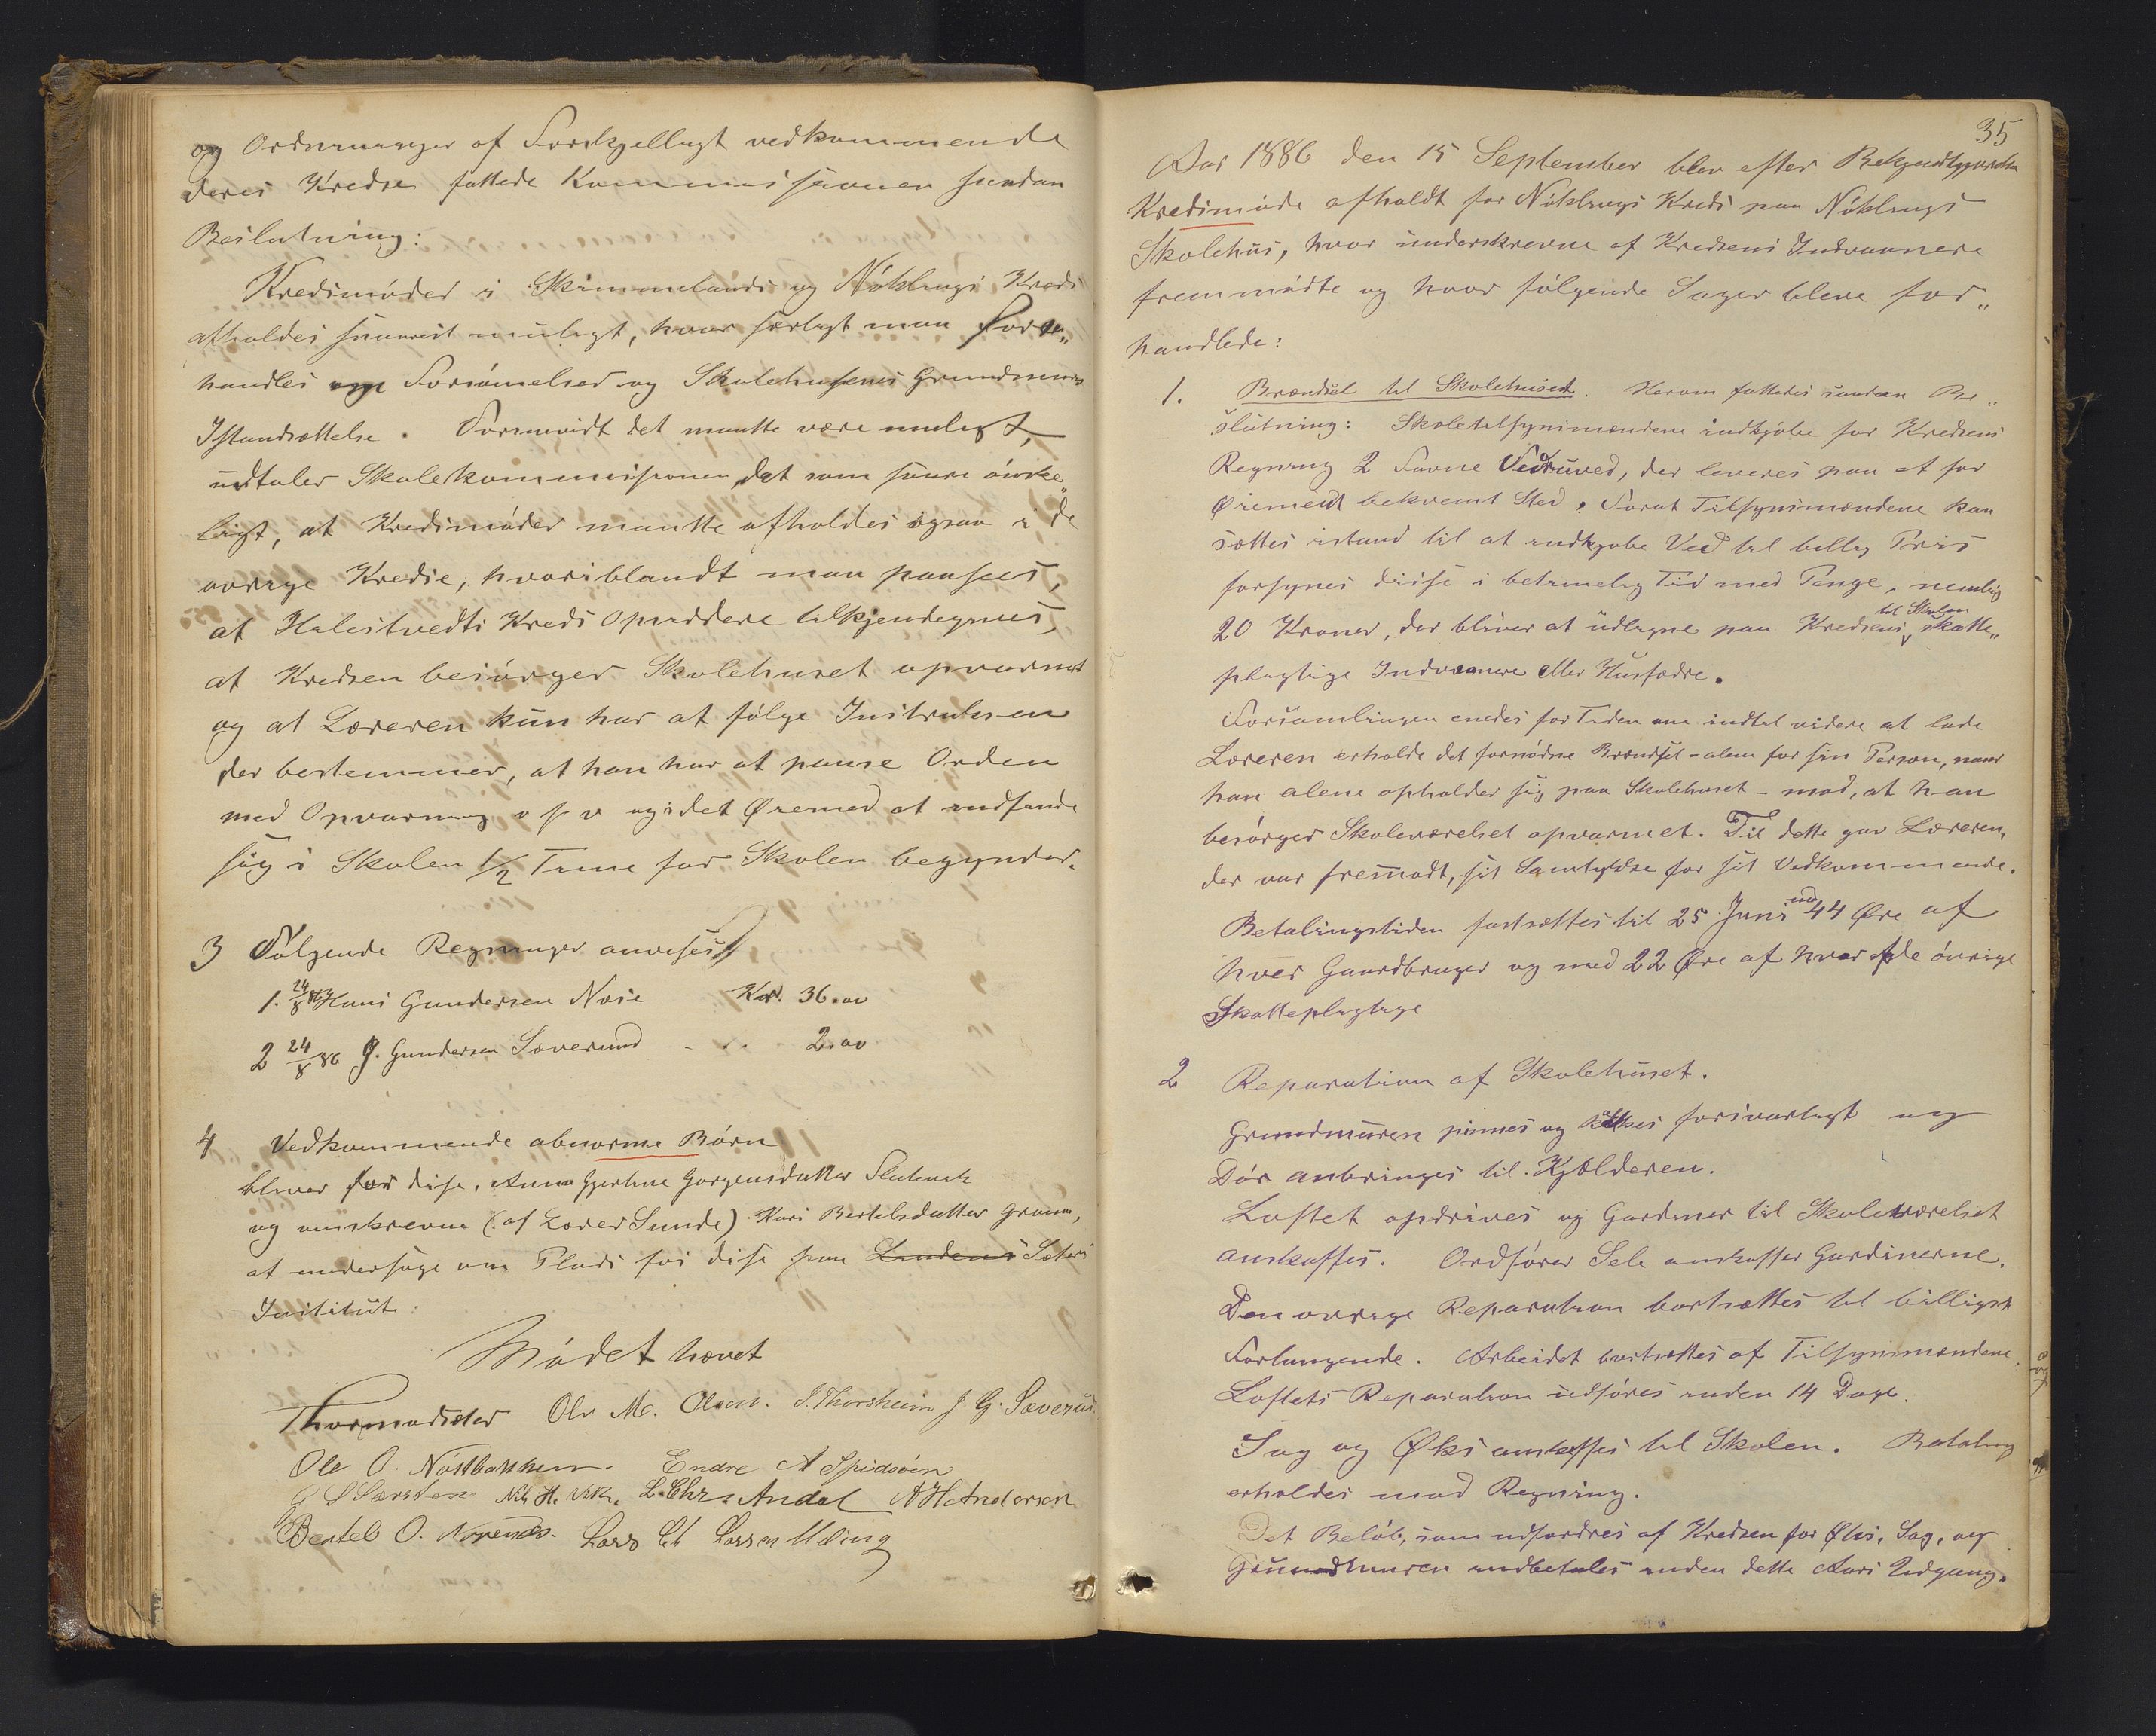 og Ordninger af Forskjelligt vedkommende
deres Kredse fattede Kommissionen saadan
Beslutning:
Kredsmøder i Skimmelands og Nöklings Kreds
afholdes snarest muligt, hvor særligt maa for„
handles om Forsømelser og Skolehusenes Grundmurs
Istandsættelse. Forsaavidt det maatte være muligt,
udtaler Skolekommissionen det som saare önske„
ligt, at Kredsmöder maatte afholdes ogsaa i de
övrige Kredse, hvoriblandt man paasees,
at Kreds Opsiddere tilkjendegives,
at Kredsen besörger Skolehuset opvarmet
og at Læreren kun har at fölge Instruksen
der bestemmer, at han har at passe Orden
med Opvarmning o s v og i det Øiemed at indfinde
sig i Skolen 1/2 Time för Skolen begynder.
3 Fölgende Regninger anvises
1. 24/8 86 Hans Gundersen Kr. 36.00
2 24/8 86 J. Gundersen Sæverud - - - 2.00
4 Vedkommende abnorme Börn
bliver for disse, Anna Gjertine Gorgensdatter
og omskrevne (: af Lærer Sunde) Kari Bertelsdatter
at undersöge om Plads for disse paa Lindens
Institut:
Mödet hævet
Thormodsæter Ole M. Olsen. S. Thorsheim J. G. Sæverud
Ole O. Nöttbakken. Endre A Spidsöen
Nils H. Vik. L. Chr. Andal A H Andersen
Bertel O. Lars Ch Larsen Uding
35
Aar 1886 den 15 September blev efter Bekjendtgjørelse
Kredsmöde afholdt for Nöklings Kreds paa Nöklings
Skolehus, hvor underskrevne af Kredsens Indvaanere
fremmödte og hvor fölgende Sager bleve for„
handlede:
1. Brændsel til Skolehuset. Herom fattedes saadan Be„
slutning: Skoletilsynsmændene indkjöbe for Kredsens
Regning 2 Favne Furuved, der leveres paa et for
Øiemedet bekvemt Sted. Forat Tilsynsmændene kan
sættes istand til at indkjøbe Ved til billig Pris
forsynes disse i betimelig Tid med Penge, nemlig
20 Kroner, der bliver at udligne paa Kredsens til Skolen skatte„
pligtige Indvaanere eller Husfædre.
Forsamlingen enedes for Tiden om indtil videre at lade
Læreren erholde det fornödne Brændsel - alene for sin Person, naar
han alene opholder sig paa Skolehuset - mod, at han
besörger Skoleværelset opvarmet. Til dette gav Læreren,
der var fremmödt, sit Samtykke for sit Vedkommende.
Betalingstiden fastsættes til 25 Juni med 44 Øre af
hver Gaardbruger og med 22 Øre af hver af de övrige
Skattepligtige
2 Reparation af Skolehuset.
Grundmuren pinnes og kalkes forsvarligt og
Dör anbringes til Kjælderen.
Loftet opdrives og Gardiner til Skoleværelset
anskaffes. Ordförer Sele anskaffer Gardinerne.
Den övrige Reparation bortsættes til billigst
Forlangende. Arbeidet bortsættes af Tilsynsmændene.
Loftets Reparation udföres inden 14 Dage.
Sag og Øks anskaffes til Skolen. Betaling
erholdes mod Regning.
Det Belöb, som udfordres af Kredsen for Øks, Sag, og
Grundmuren indbetales inden dette Aars Udgang.